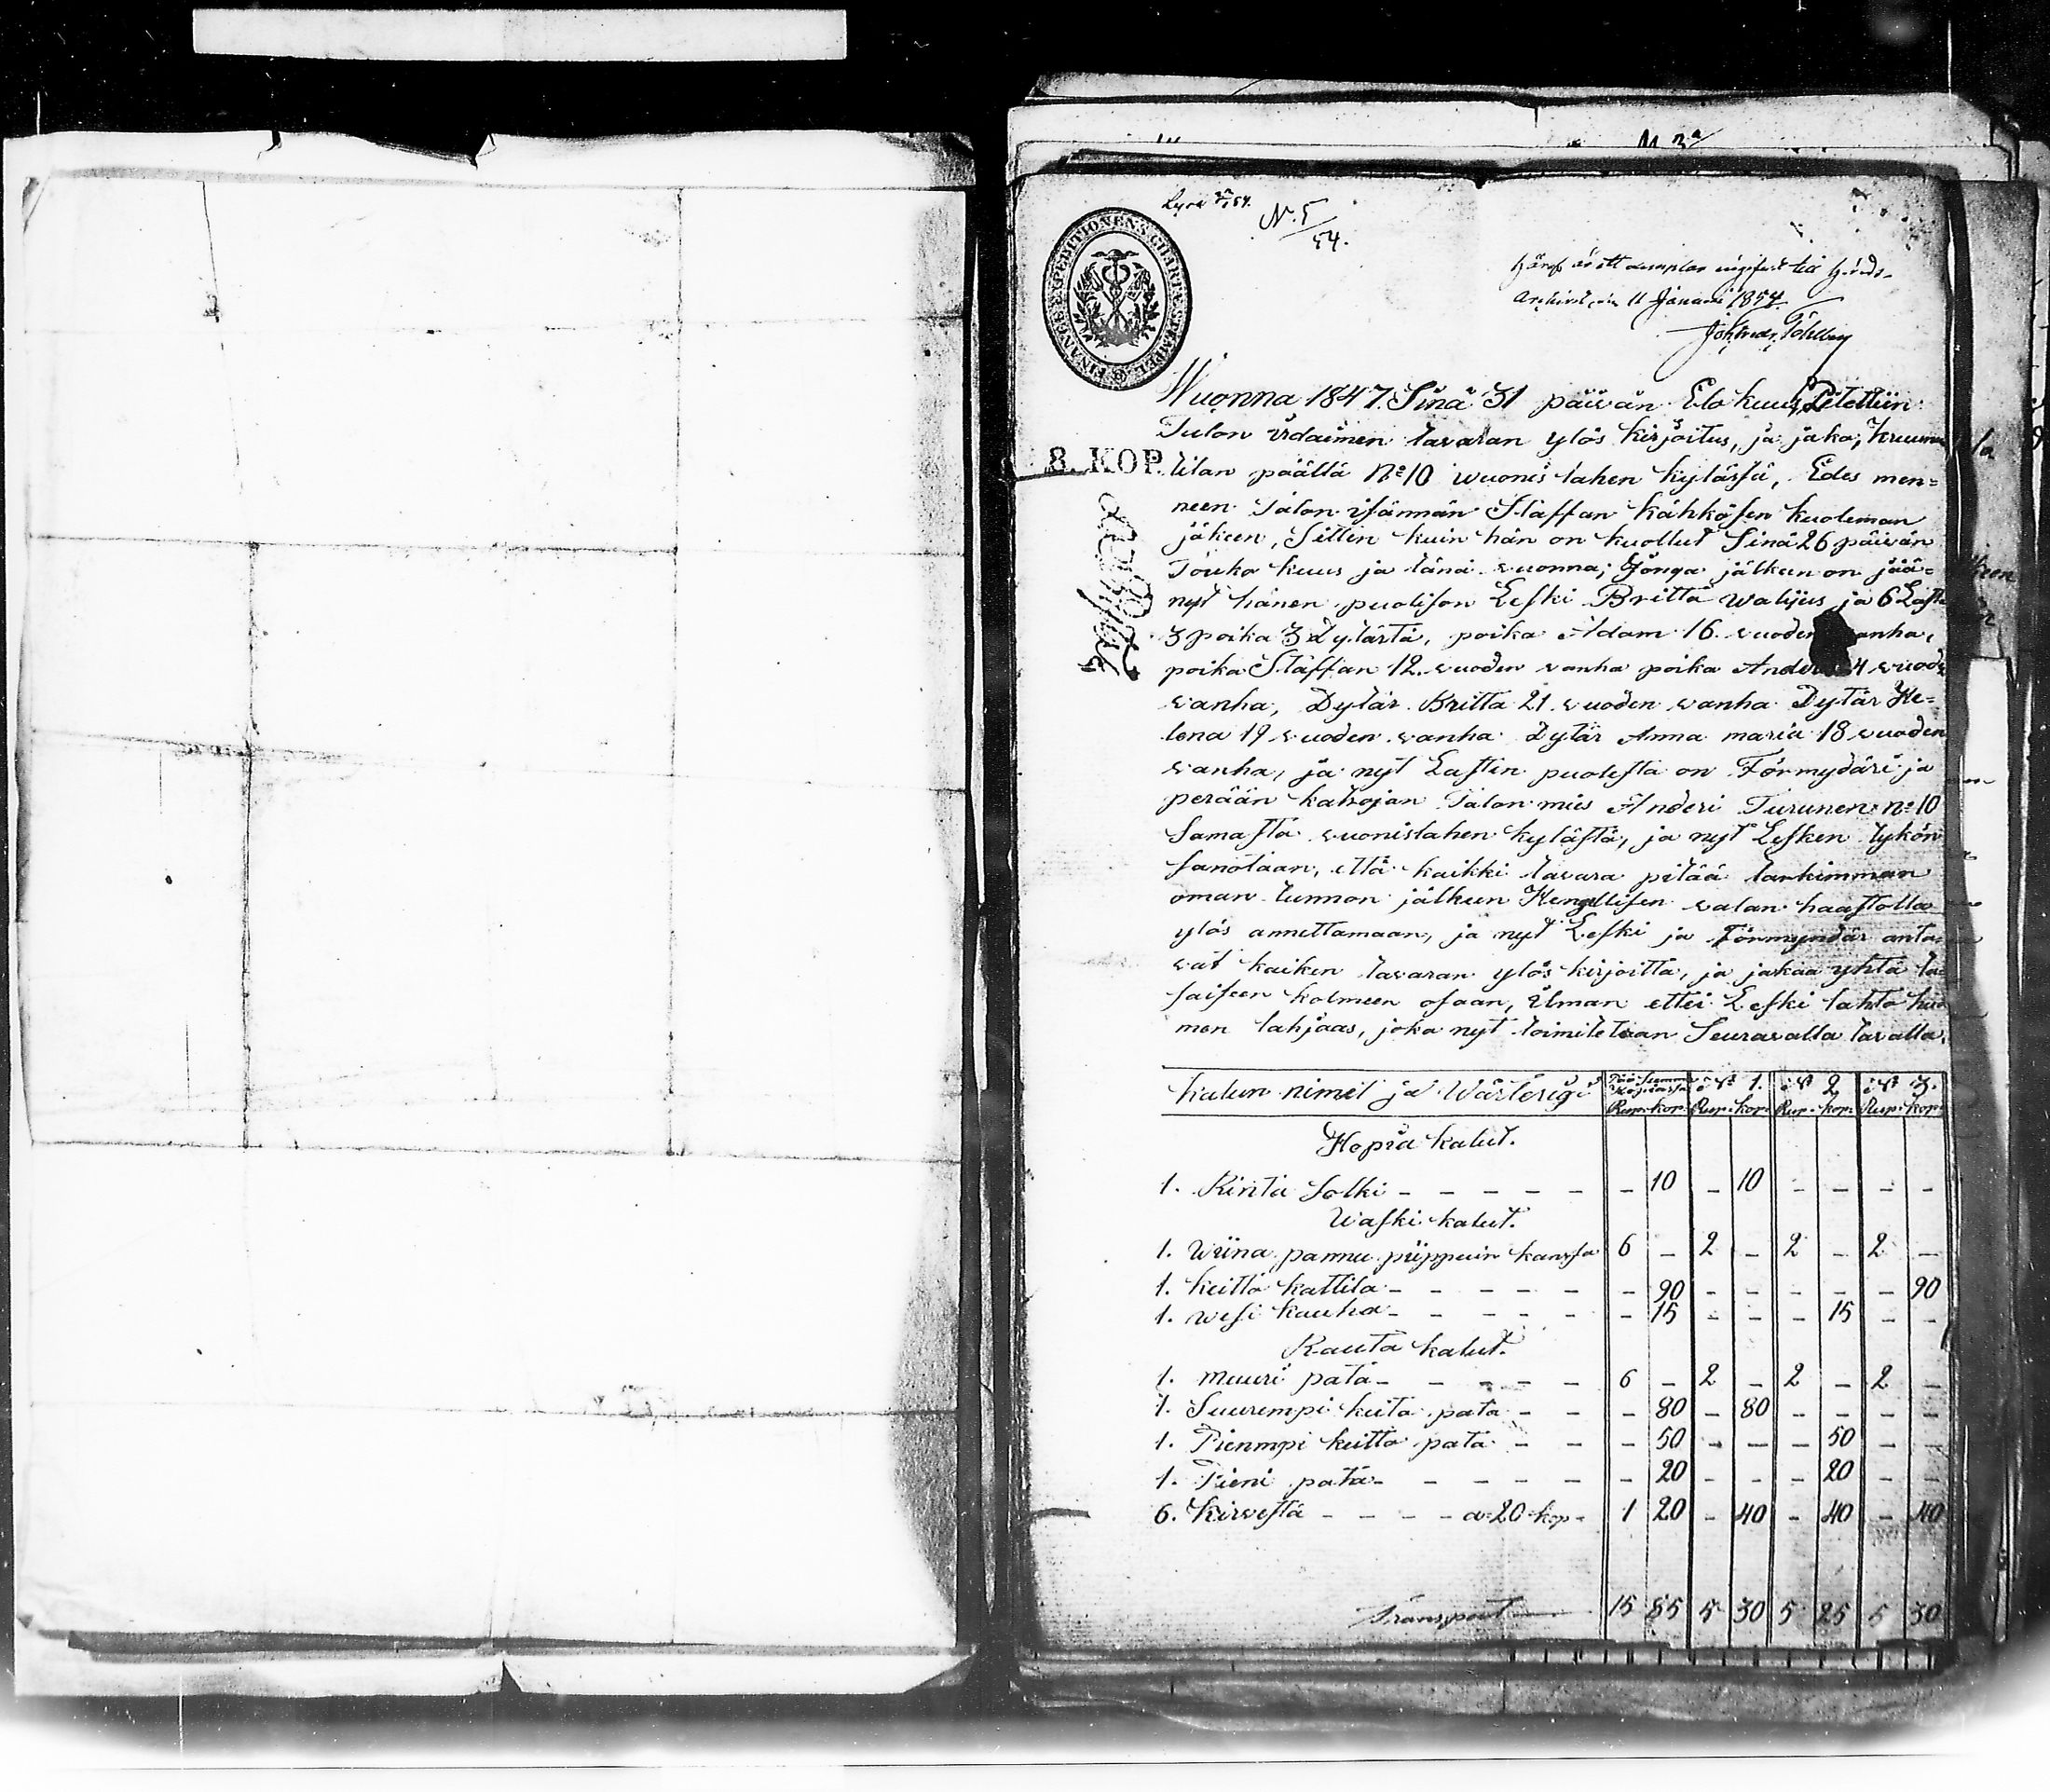 N. 5
54.
FINANCE EXPEDITIONENS CHARTÆ STEMPEL
till Härads-
Archivet, den 11 Januari 1854
Wuonna 1847. Sinä 31 päivän Elo kuus, Pitettiin
Talon irdaimen tavaran ylös kirjoitus, ja jako, kruunu
8. KOP.
tilan päällä No 10 wuonis lahen kyläsſä, Edes men=
neen Talon iſännän Staffan Kähköſen kuoleman
jäkeen, Sitten kuin hän on kuollut Sinä 26 päivän
Touko kuus ja tänä vuonna; Jonga jälkeen on jää=
nyt hänen puoliſon Leſki Britta walijus ja 6 Laſta
3 poika 3 Dytärtä, poika Adam 16. vuoden vanha,
poika Staffan 12. vuoden vanha poika Anderi 4 vuode
vanha, Dytär Britta 21 vuoden vanha Dytär He=
lena 19 vuoden vanha Dytär Anna maria 18 vuoden
vanha, ja nyt Laſtin puoleſta on Förmydäri ja
perään kahtojan Talon mies Anderi Turunen No 10
Samaſta vuonislahen kyläſtä, ja nyt Leſken tykön
ſanotaan, että kaikki tavara pitää tarkimman
oman tunnon jälkeen Hengelliſen valan haaſtolla
ylös annettamaan, ja nyt Leſki ja Förmyndär anta
vat kaiken tavaran ylös kirjoitta, ja jakaa yhtä ta
ſaiſeen kolmeen oſaan, ilman ettei Leſki tahto huo
men lahjaas, joka nyt toimitetaan Seuravalla tavalla,
Kalun nimet ja Wärterigi 1. 2. 3.
Rup: kop: Rup: kop: Rup: kop: Rup: kop:
Hopia kalut.
1. Rinta Solki - - - - - - 10 - 10 - - - -
Waſki kalut.
1. Wiina pannu piippuin kansſa 6 - 2 - 2 - 2 -
1. keitto kattila - - - - - - 90 - - - - - 90
1. weſi kauha - - - - - - 15 - - - 15 - -
Rauta kalut.
1. muuri pata - - - - - 6 - 2 - 2 - 2 -
1. Suurempi keito pata - - - 80 - 80 - - - -
1. Pienmpi keitto pata - - - 50 - - - 50 - -
1. Pieni pata - - - - - - 20 - - - 20 - -
6. Kirveſtä - - - - a 20 kop - 1 20 - 40 - 40 - 40
Transport 15 85 5 30 5 25 5 30